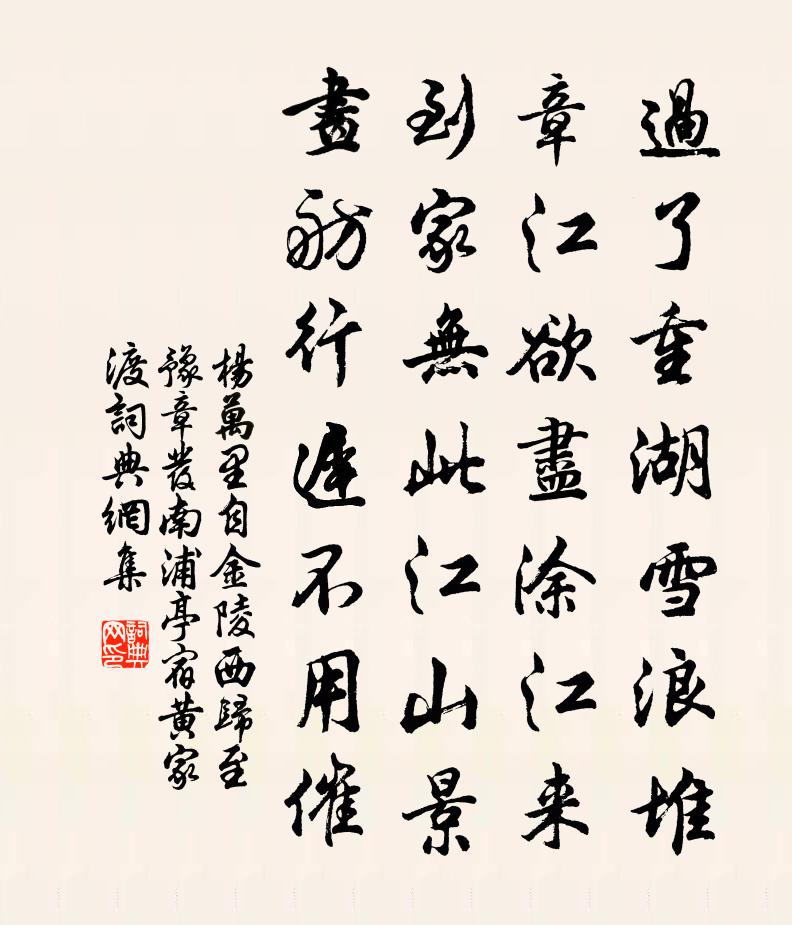 過了重湖雪浪堆
章江欲盡涂江来
到家無此江山景
畫舫行遲不用催
楊萬里自金陵西歸至
豫章發南浦亭宿黄家
渡詞典網集
詞典网印